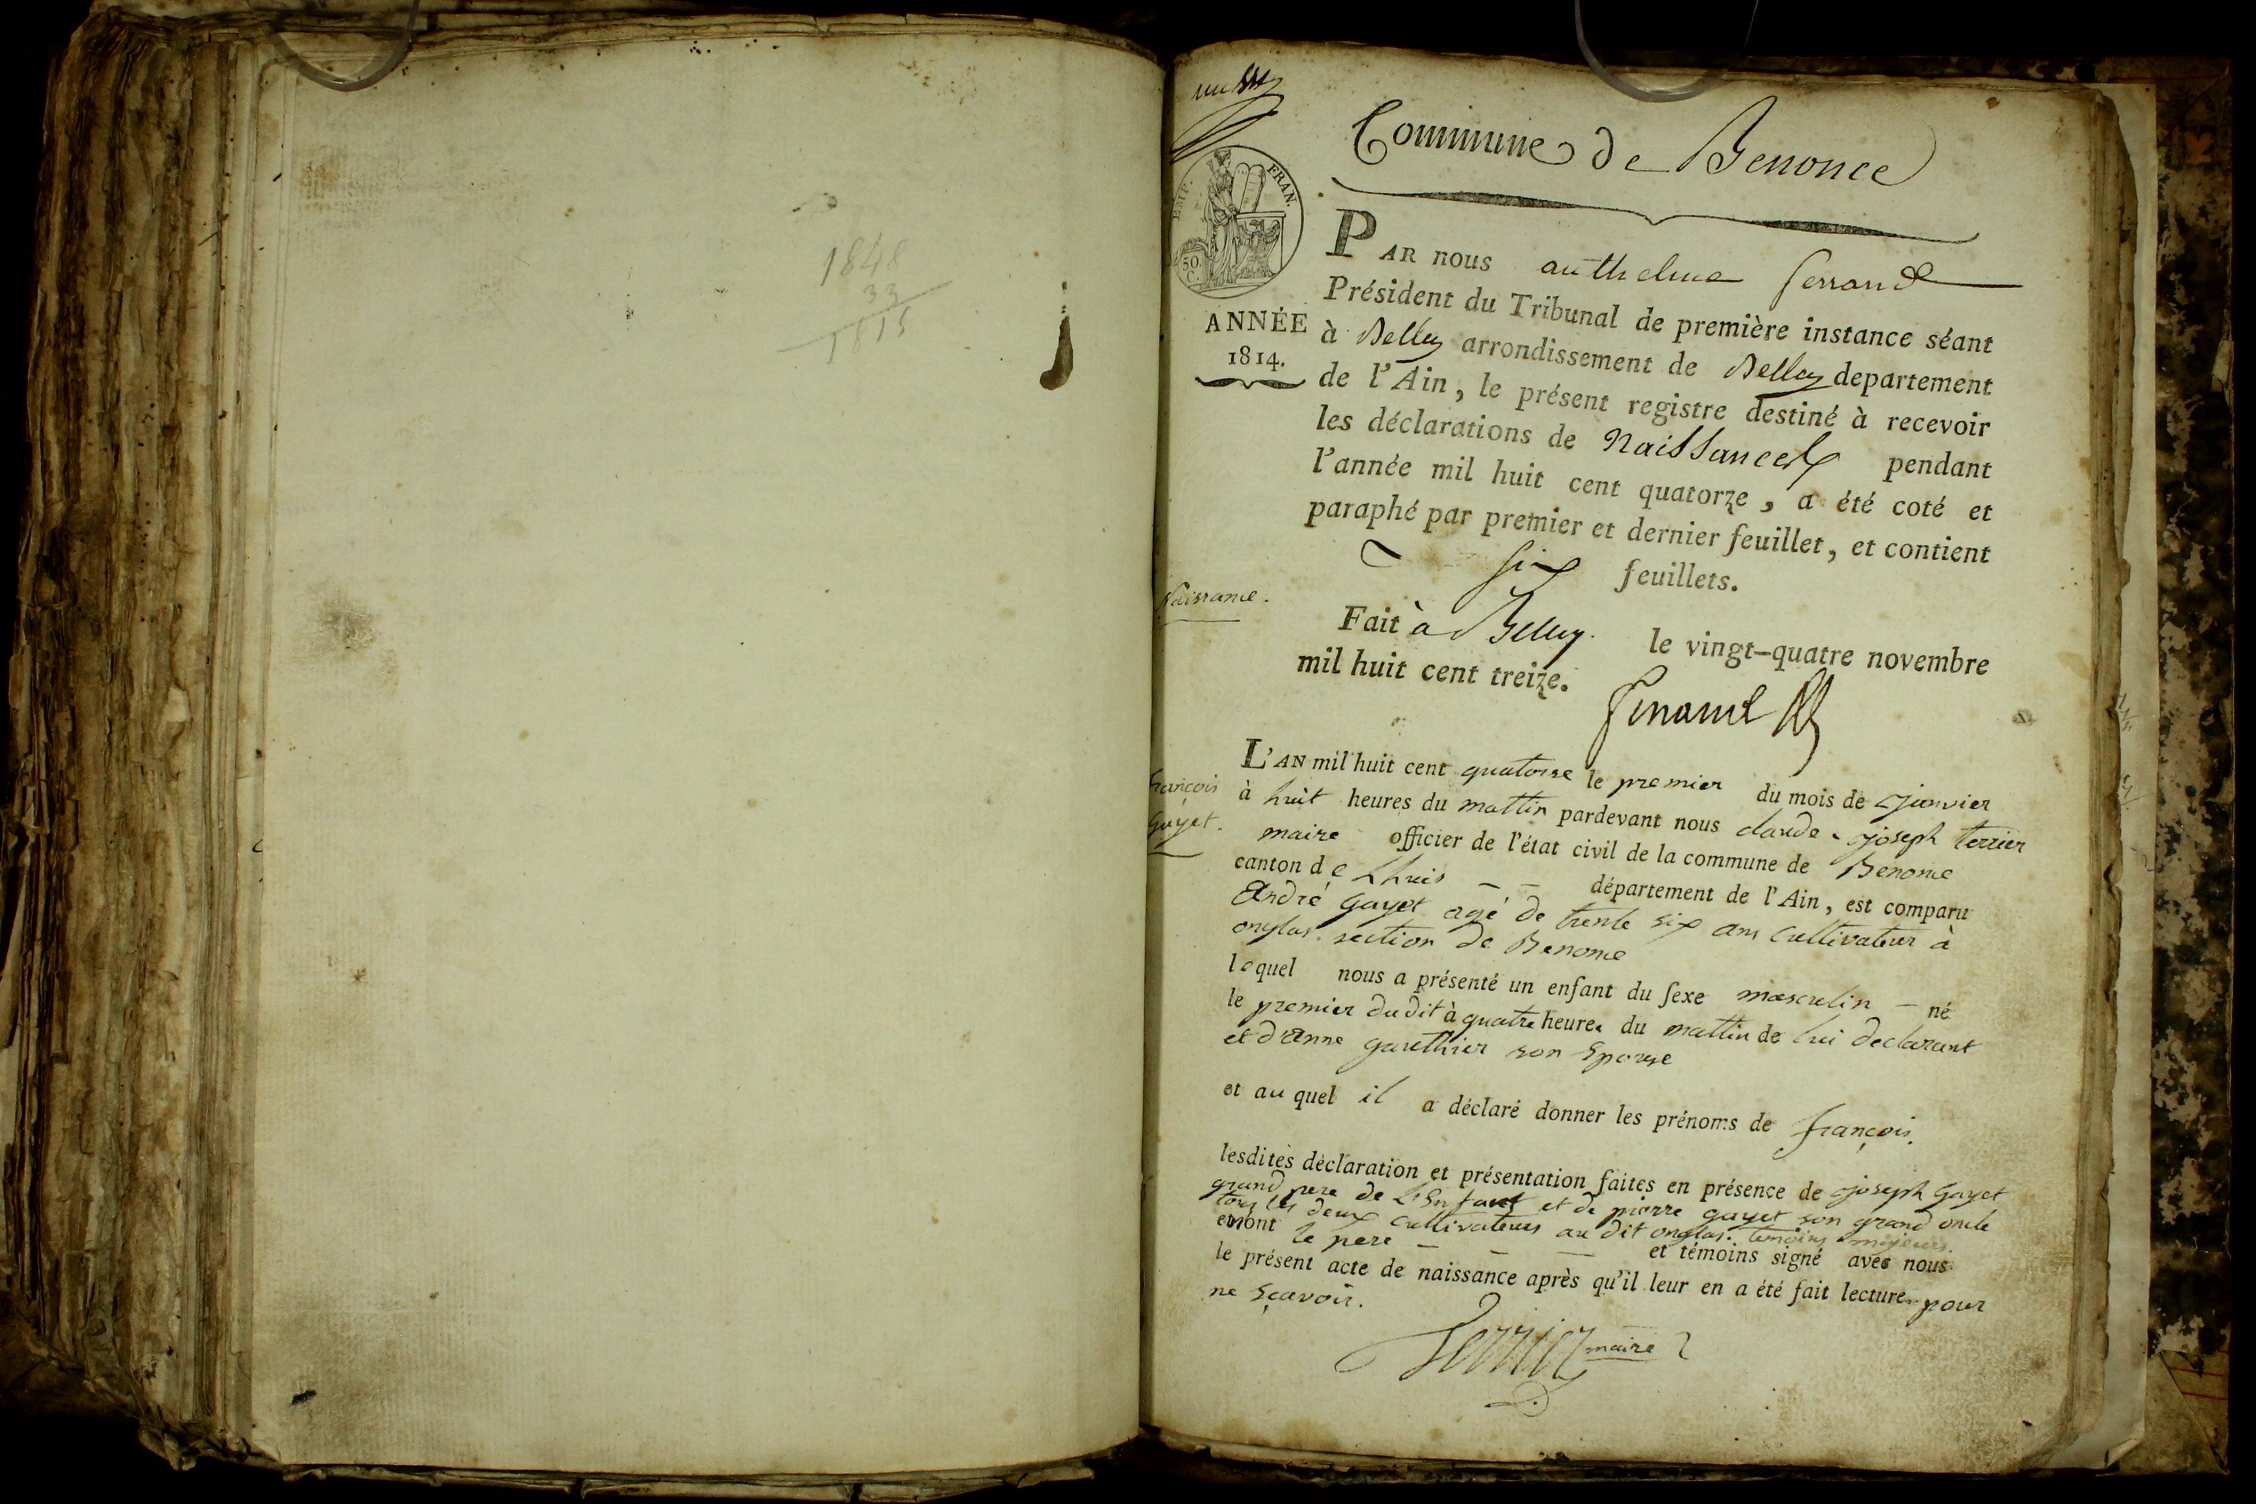 1848
33
1815
Commune de Benonce
EMP. FRAN.
50.
C.
ANNÉE
1814.
PAR nous anthelme ferrand
Président du Tribunal de première instance séant
à Belley arrondissement de Belley departement
de l'Ain, le présent registre destiné à recevoir
les déclarations de Naissances pendant
l'année mil huit cent quatorze, a été coté et
paraphé par premier et dernier feuillet, et contient
six feuillets.
Fait à Belley. le vingt-quatre novembre
mil huit cent treize.
ferrand
Naissance.
françois
Gayet.
L'AN mil huit cent quatorse le premier du mois de janvier
à huit heures du mattin pardevant nous claude-joseph terrier
maire officier de l'état civil de la commune de Benonce
canton de Lhuis département de l'Ain, est comparu
André Gayet agé de trente six ans cultivateur à
onglas. section de Benonce
lequel nous a présenté un enfant du sexe masculin né
le premier dudit à quatre heures du mattin de lui declarant
et d'anne gauthier son Epouse
et auquel il a déclaré donner les prénoms de françois.
lesdites déclaration et présentation faites en présence de joseph Gayet
grand pere de L'Enfant et de pierre gayet son grand oncle
tous les deux cultivateurs au dit onglas. temoins majeurs.
et n'ont le pere et témoins signé avec nous
le présent acte de naissance après qu'il leur en a été fait lecture pour
ne sçavoir.
Terrier maire